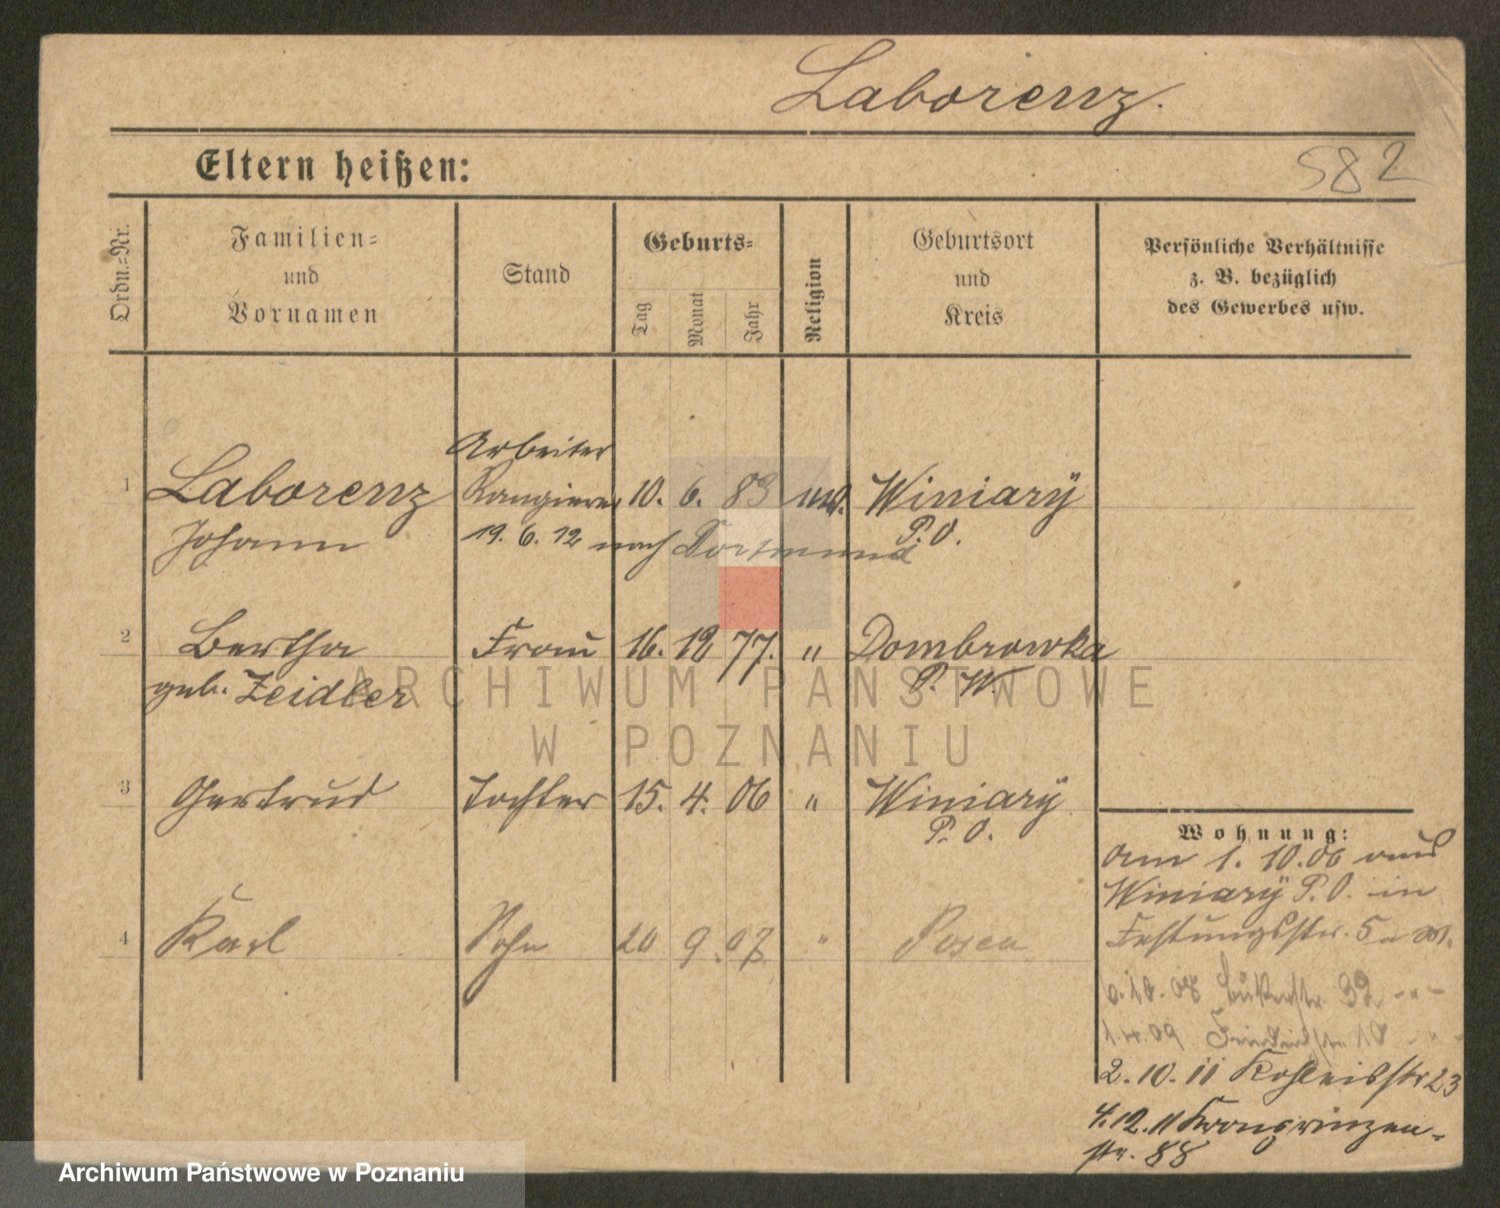 Laborenz.
Eltern heißen:
582
Ordn.-Nr.
Familien-
und
Vornamen
Stand
Geburts-
Tag
Monat
Jahr
Religion
Geburtsort
und
Kreis
Persönliche Verhältnisse
z. B. bezüglich
des Gewerbes usw.
Arbeiter
1 Laborenz Rangierer 10. 6. 83 Winiary
Johann 19. 6. 12 nach Dortmund P. O.
2 Bertha Frau 16. 12 77. " Dombrowka
geb. Zeidler P. W.
3 Gertrud Tochter 15. 4. 06 " Winiary
P. O.
4 Karl Sohn 20 9. 07 " Posen
Wohnung:
am 1. 10. 06 aus
Winiary P. O. in
Festungsstr. 5
6. 10. 08 32 - " -
1. 4. 09 10 - " -
2. 10. 11 Kohleisstr 23
4. 12. 11 Kronprinzen-
str. 88
ARCHIWUM PAŃSTWOWE
W POZNANIU
Archiwum Państwowe w Poznaniu